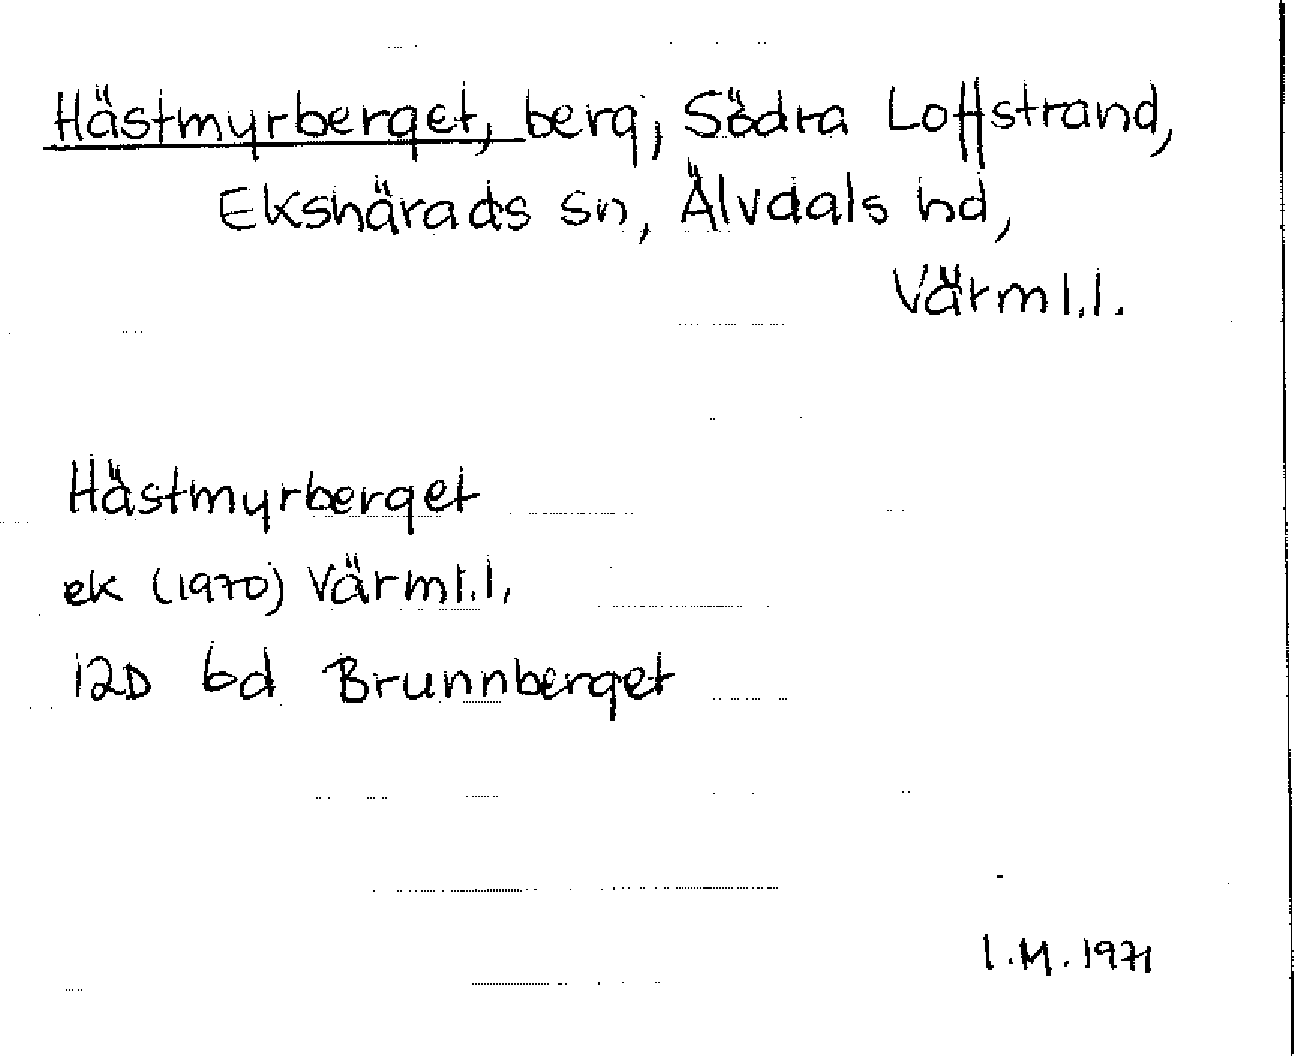 Hästmyrberget, berg, Södra Loffstrand,
Ekshärads sn, Älvdals hd,
Värml.l.
Hästmyrberget
ek (1970) Värml.l.
12D 6d Brunnberget
I.M. 1971